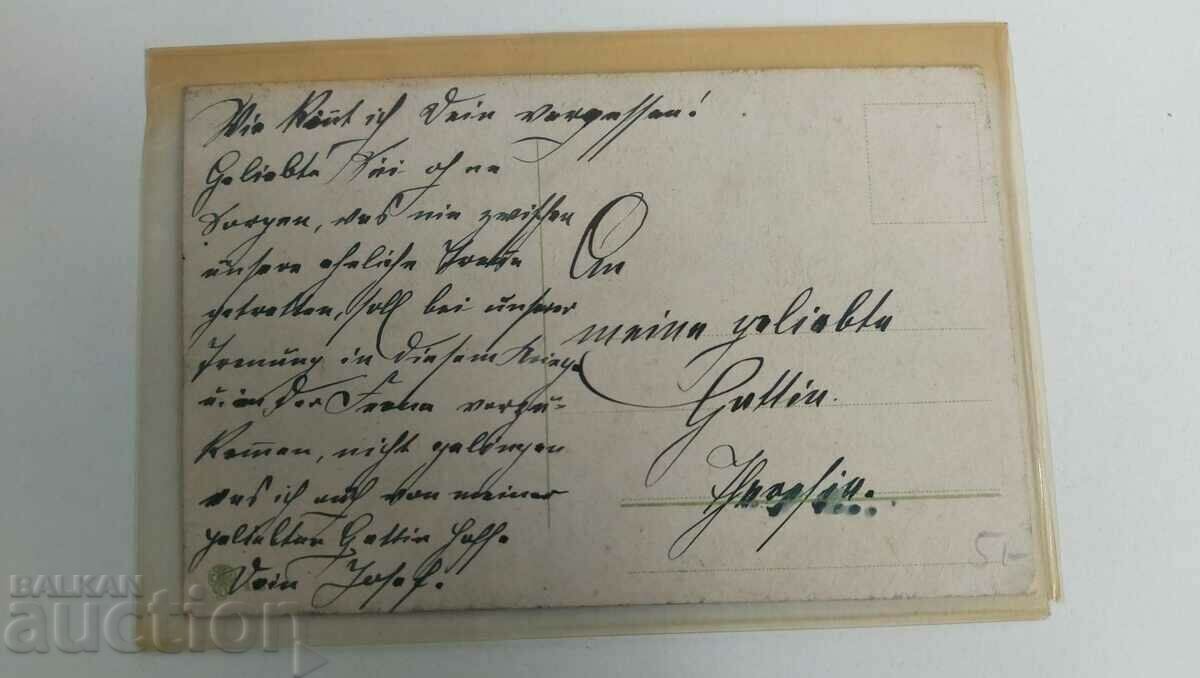 Wie könnt ich Dein vergessen!
Geliebte Sei ohne
Sorgen, was nie zwischen
unsere eheliche Treue
getretten, soll bei unserer
Trenung in diesem Kriege
u. in der Ferne vorzu-
kommen, nicht gelingen
was ich auch von meiner
geliebten Gattin hoffe.
Dein Josef.
An
meine geliebte
Gattin.
Theresia.
51-
BALKAN
auction